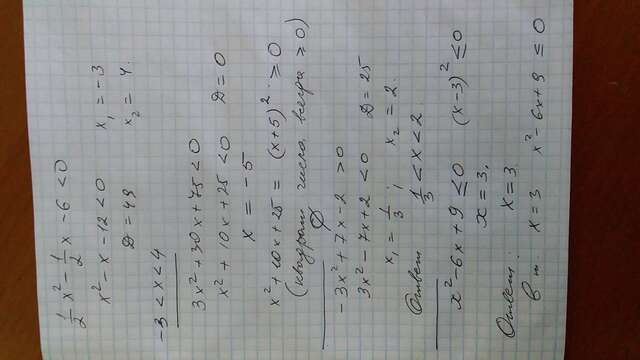 1/2 x² - 1/2 x - 6 < 0
x² - x - 12 < 0 x₁ = -3
D = 49 x₂ = 4.
-3 < x < 4
3x² + 30x + 75 < 0
x² + 10x + 25 < 0 D = 0
x = -5
x² + 10x + 25 = (x+5)² ≥ 0
(квадрат числа всегда ≥ 0)
∅
-3x² + 7x - 2 > 0
3x² - 7x + 2 < 0 D = 25
x₁ = 1/3 ; x₂ = 2.
Ответ 1/3 < x < 2.
x² - 6x + 9 ≤ 0 (x-3)² ≤ 0
x = 3.
Ответ: x = 3
в т. x = 3 x² - 6x + 9 ≤ 0